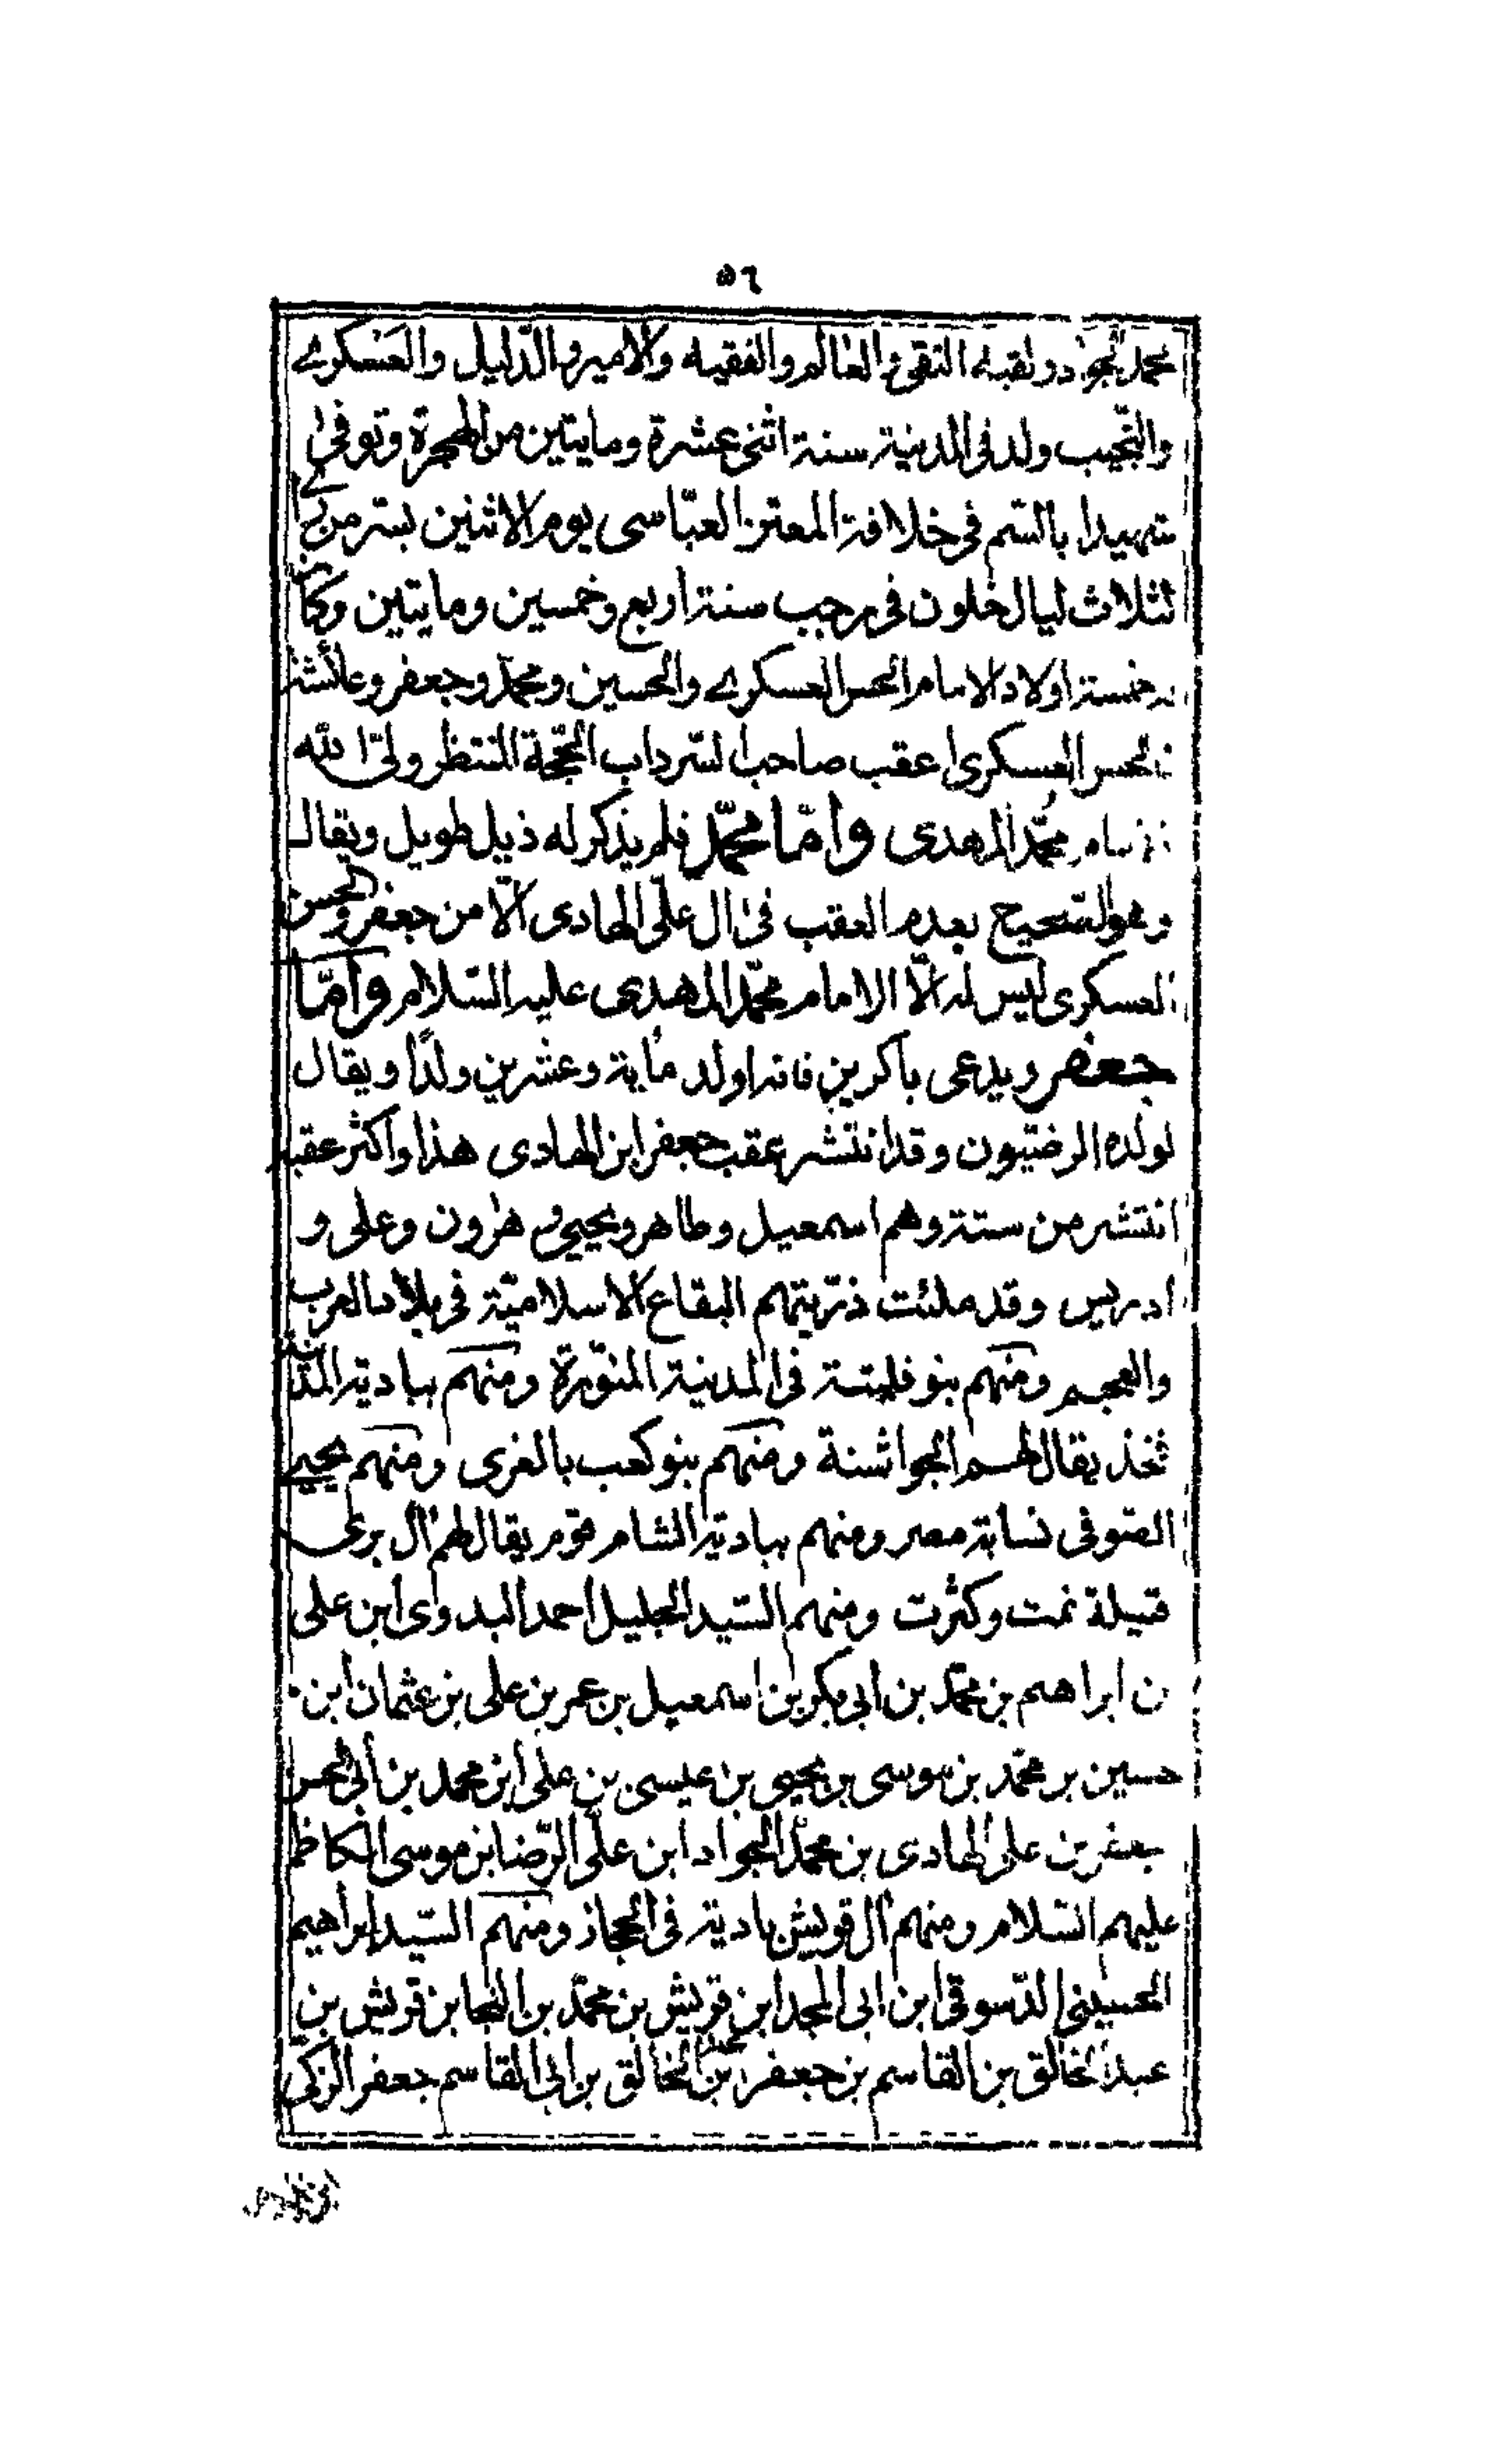 ٥٦
محمد الجواد ولقبه التقى والعالم والفقيه والامير والدّليل والعسكرى
والنّجيب ولد فى المدينة سنة اثنى عشرة ومايتين من الهجرة وتوفى
شهيدا بالسّم فى خلافة المعتز العبّاسى يوم الاثنين بسر من رأى
لثلاث ليال خلون فى رجب سنة اربع وخمسين ومايتين وكان
له خمسة اولاد الامام الحسن العسكرى والحسين ومحمّد وجعفر وعائشة
فالحسن العسكرى اعقب صاحب السّرداب الحجّة المنتظر ولىّ الله
محمّد المهدى وامّا محمّد فلم يذكر له ذيل طويل ويقال
وهو الصّحيح بعدم العقب فى ال علىّ الهادى الّا من جعفر والحسن
العسكرى ليس له الّا الامام محمّد المهدى عليه السّلام وامّا
جعفر ويدعى باكرين فانه اولد مأية وعشرين ولدًا ويقال
لولده الرضيّون وقد انتشر عقب جعفر ابن الهادى هذا واكثر عقبه
انتشر من ستة وهم اسمعيل وطاهر ويحيى وهرون وعلى و
ادريس وقد ملئت ذرّيتهم البقاع الاسلاميّة فى بلاد العرب
والعجم ومنهم بنو فليتة فى المدينة المنوّرة ومنهم ببادية المدينة
فخذ يقال لهم الجواشنة ومنهم بنو كعب بالغرى ومنهم يحيى
الصّوفى نسابة مصر ومنهم ببادية الشام قوم يقال لهم ال برى
قبيلة نمت وكثرت ومنهم السّيد الجليل احمد البدوى ابن على
بن ابراهيم بن محمّد بن ابى بكر بن اسمعيل بن عمر بن على بن عثمان ابن
حسين بن محمّد بن موسى بن يحيى بن عيسى بن على ابن محمد بن أبى الحسن
جعفر بن على الهادى بن محمّد الجواد ابن علىّ الرّضا بن موسى الكاظم
عليهم السّلام ومنهم ال قويش بادية فى الحجاز ومنهم السّيد ابراهيم
الحسينى الدّسوقى ابن ابى المجد ابن قريش بن محمّد بن النجا بن قريش بن
عبد الخالق بن القاسم بن جعفر بن الخالق بن ابى القاسم جعفر الزكىّ